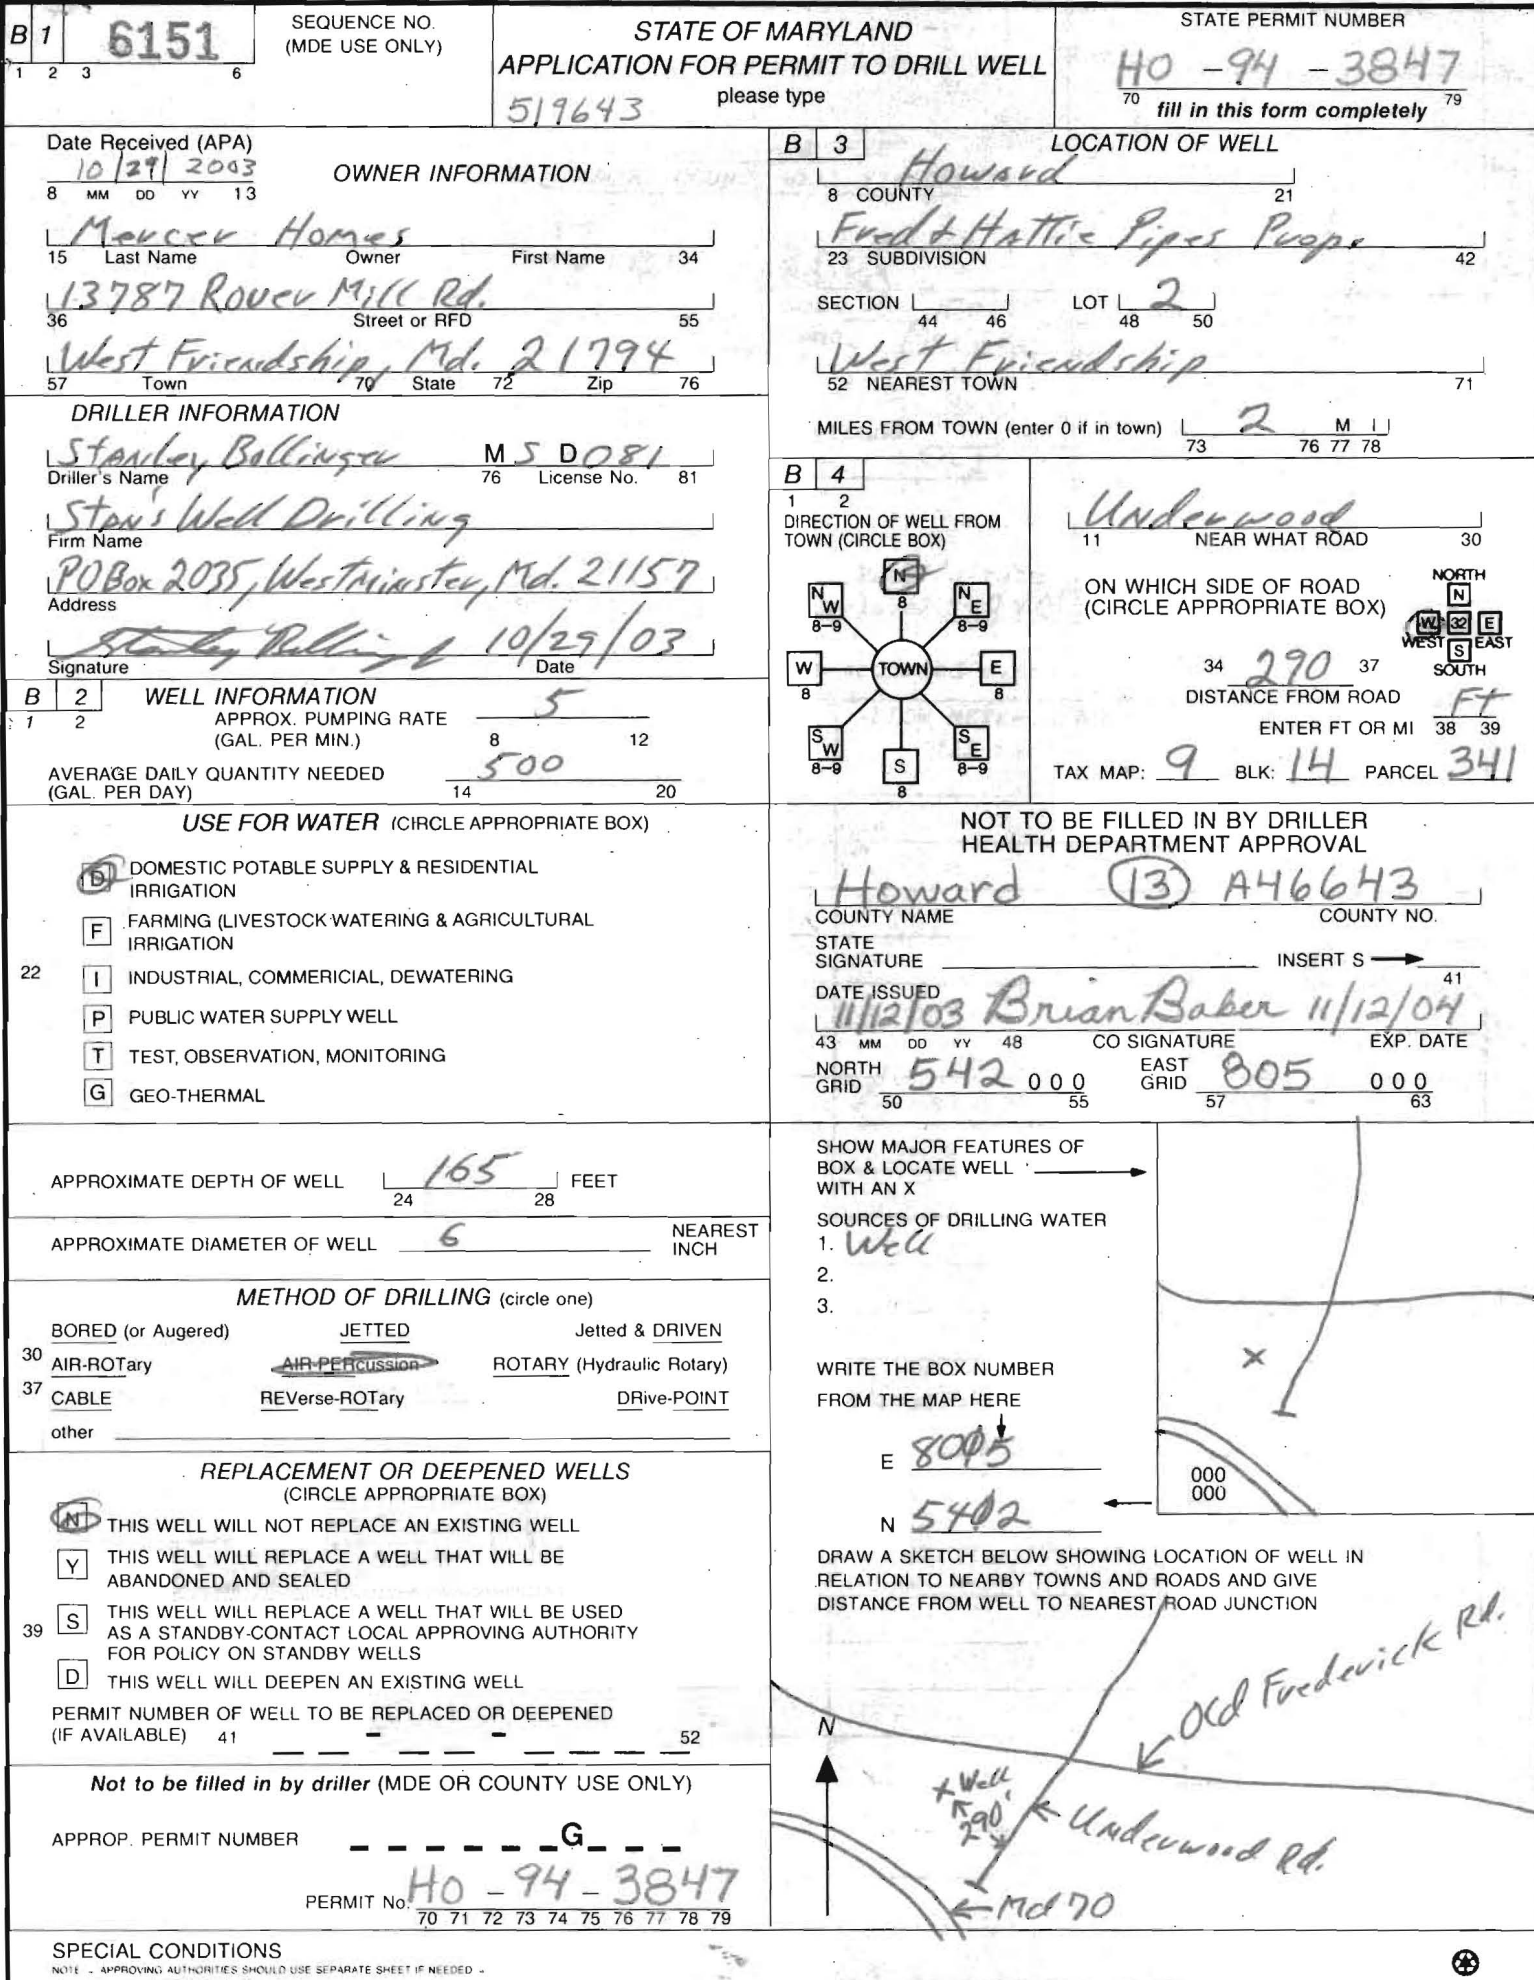 B 1 6151
1 2 3 6
SEQUENCE NO.
(MDE USE ONLY)
STATE OF MARYLAND
APPLICATION FOR PERMIT TO DRILL WELL
please type
519643
STATE PERMIT NUMBER
HO - 94 - 3847
70 fill in this form completely 79
Date Received (APA)
10/29/2003
8 MM DD YY 13
OWNER INFORMATION
Mercer Homes
15 Last Name Owner First Name 34
13787 Rover Mill Rd.
36 Street or RFD 55
West Friendship, Md. 21794
57 Town 70 State 72 Zip 76
DRILLER INFORMATION
Stanley Bollinger M S D 081
Driller's Name 76 License No. 81
Stan's Well Drilling
Firm Name
PO Box 2035, Westminster, Md. 21157
Address
Stanley Bollinger 10/29/03
Signature Date
B 2 WELL INFORMATION
1 2
APPROX. PUMPING RATE 5
(GAL. PER MIN.) 8 12
AVERAGE DAILY QUANTITY NEEDED 500
(GAL. PER DAY) 14 20
USE FOR WATER (CIRCLE APPROPRIATE BOX)
D DOMESTIC POTABLE SUPPLY & RESIDENTIAL
IRRIGATION
F FARMING (LIVESTOCK WATERING & AGRICULTURAL
IRRIGATION
22 I INDUSTRIAL, COMMERICIAL, DEWATERING
P PUBLIC WATER SUPPLY WELL
T TEST, OBSERVATION, MONITORING
G GEO-THERMAL
APPROXIMATE DEPTH OF WELL 165 FEET
24 28
APPROXIMATE DIAMETER OF WELL 6 NEAREST
INCH
METHOD OF DRILLING (circle one)
BORED (or Augered) JETTED Jetted & DRIVEN
30 AIR-ROTary AIR-PERcussion ROTARY (Hydraulic Rotary)
37 CABLE REVerse-ROTary DRive-POINT
other
REPLACEMENT OR DEEPENED WELLS
(CIRCLE APPROPRIATE BOX)
N THIS WELL WILL NOT REPLACE AN EXISTING WELL
Y THIS WELL WILL REPLACE A WELL THAT WILL BE
ABANDONED AND SEALED
39 S THIS WELL WILL REPLACE A WELL THAT WILL BE USED
AS A STANDBY-CONTACT LOCAL APPROVING AUTHORITY
FOR POLICY ON STANDBY WELLS
D THIS WELL WILL DEEPEN AN EXISTING WELL
PERMIT NUMBER OF WELL TO BE REPLACED OR DEEPENED
(IF AVAILABLE) 41 - - 52
Not to be filled in by driller (MDE OR COUNTY USE ONLY)
APPROP. PERMIT NUMBER G
PERMIT No. HO - 94 - 3847
70 71 72 73 74 75 76 77 78 79
SPECIAL CONDITIONS
NOTE - APPROVING AUTHORITIES SHOULD USE SEPARATE SHEET IF NEEDED -
B 3 LOCATION OF WELL
Howard
8 COUNTY 21
Fred & Hattie Pipes Prop.
23 SUBDIVISION 42
SECTION LOT 2
44 46 48 50
West Friendship
52 NEAREST TOWN 71
MILES FROM TOWN (enter 0 if in town) 2 M I
73 76 77 78
B 4
1 2
DIRECTION OF WELL FROM
TOWN (CIRCLE BOX)
N
8
NW
8-9
NE
8-9
W
8
TOWN
E
8
SW
8-9
S
8
SE
8-9
Underwood
11 NEAR WHAT ROAD 30
ON WHICH SIDE OF ROAD
(CIRCLE APPROPRIATE BOX)
NORTH
N
W 32 E
WEST S EAST
SOUTH
34 290 37
DISTANCE FROM ROAD
ENTER FT OR MI Ft
38 39
TAX MAP: 9 BLK: 14 PARCEL 341
NOT TO BE FILLED IN BY DRILLER
HEALTH DEPARTMENT APPROVAL
Howard 13 A46643
COUNTY NAME COUNTY NO.
STATE
SIGNATURE INSERT S
41
DATE ISSUED
11/12/03 Brian Baker 11/12/04
43 MM DD YY 48 CO SIGNATURE EXP. DATE
NORTH
GRID 542 000
50 55
EAST
GRID 805 000
57 63
SHOW MAJOR FEATURES OF
BOX & LOCATE WELL
WITH AN X
SOURCES OF DRILLING WATER
1. Well
2.
3.
X
WRITE THE BOX NUMBER
FROM THE MAP HERE
E 8005
N 5402
000
000
DRAW A SKETCH BELOW SHOWING LOCATION OF WELL IN
RELATION TO NEARBY TOWNS AND ROADS AND GIVE
DISTANCE FROM WELL TO NEAREST ROAD JUNCTION
Old Frederick Rd.
N
x Well
290'
Underwood Rd.
Md 70